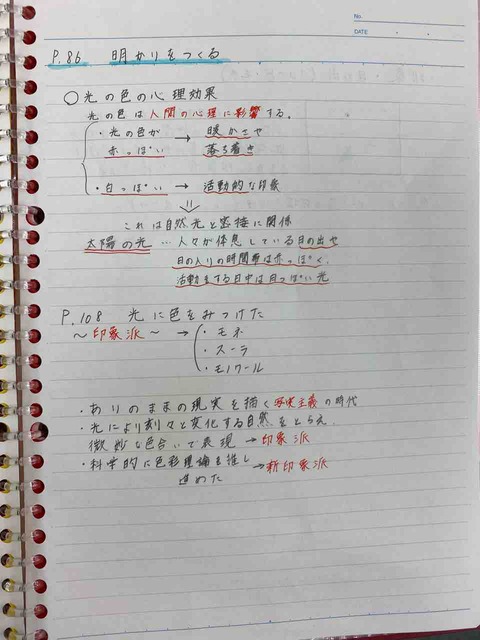 No.
DATE
P.86 明かりをつくる
○光の色の心理効果
光の色は人間の心理に影響する。
・光の色が → 暖かさや
赤っぽい 落ち着き
・白っぽい → 活動的な印象
これは自然光と密接に関係
太陽の光 … 人々が休息している日の出や
日の入りの時間帯は赤っぽく、
活動をする日中は白っぽい光
P.108 光に色をみつけた
〜印象派〜 → ・モネ
・スーラ
・モノワール
・ありのままの現実を描く写実主義の時代
・光により刻々と変化する自然をとらえ
微妙な色合いで表現 → 印象派
・科学的に色彩理論を推し → 新印象派
進めた